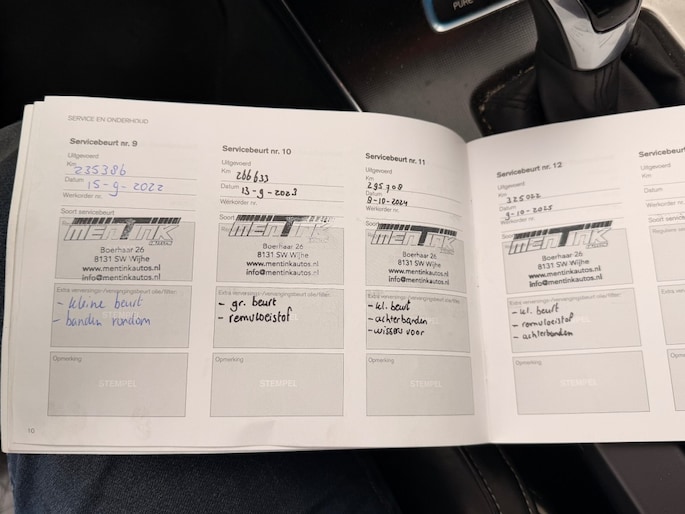 PURE
SERVICE EN ONDERHOUD
Servicebeurt nr. 9
Uitgevoerd
Km
235386
Datum
15-9-2022
Werkorder nr.
Soort servicebeurt
MENTINK
Boerhaar 26
8131 SW Wijhe
www.mentinkautos.nl
info@mentinkautos.nl
Extra verversings-/vervangingsbeurt olie/filter:
- kleine beurt
- banden rondom
Opmerking
STEMPEL
10
Servicebeurt nr. 10
Uitgevoerd
Km
266633
Datum
13-9-2023
Werkorder nr.
Soort servicebeurt
MENTINK
Boerhaar 26
8131 SW Wijhe
www.mentinkautos.nl
info@mentinkautos.nl
Extra verversings-/vervangingsbeurt olie/filter:
- gr. beurt
- remvloeistof
Opmerking
STEMPEL
Servicebeurt nr. 11
Uitgevoerd
Km
295708
Datum
9-10-2024
Werkorder nr.
Soort servicebeurt
MENTINK
Boerhaar 26
8131 SW Wijhe
www.mentinkautos.nl
info@mentinkautos.nl
Extra verversings-/vervangingsbeurt olie/filter:
- kl. beurt
- achterbanden
- wissers voor
Opmerking
STEMPEL
Servicebeurt nr. 12
Uitgevoerd
Km
325022
Datum
9-10-2025
Werkorder nr.
Soort servicebeurt
MENTINK
Boerhaar 26
8131 SW Wijhe
www.mentinkautos.nl
info@mentinkautos.nl
Extra verversings-/vervangingsbeurt olie/filter:
- kl. beurt
- remvloeistof
- achterbanden
Opmerking
STEMPEL
Servicebeurt
Uitgevoerd
Km
Datum
Werkorder nr.